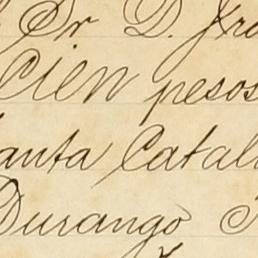 Sr D. Fra
Cien pesos
Santa Catal
Durango